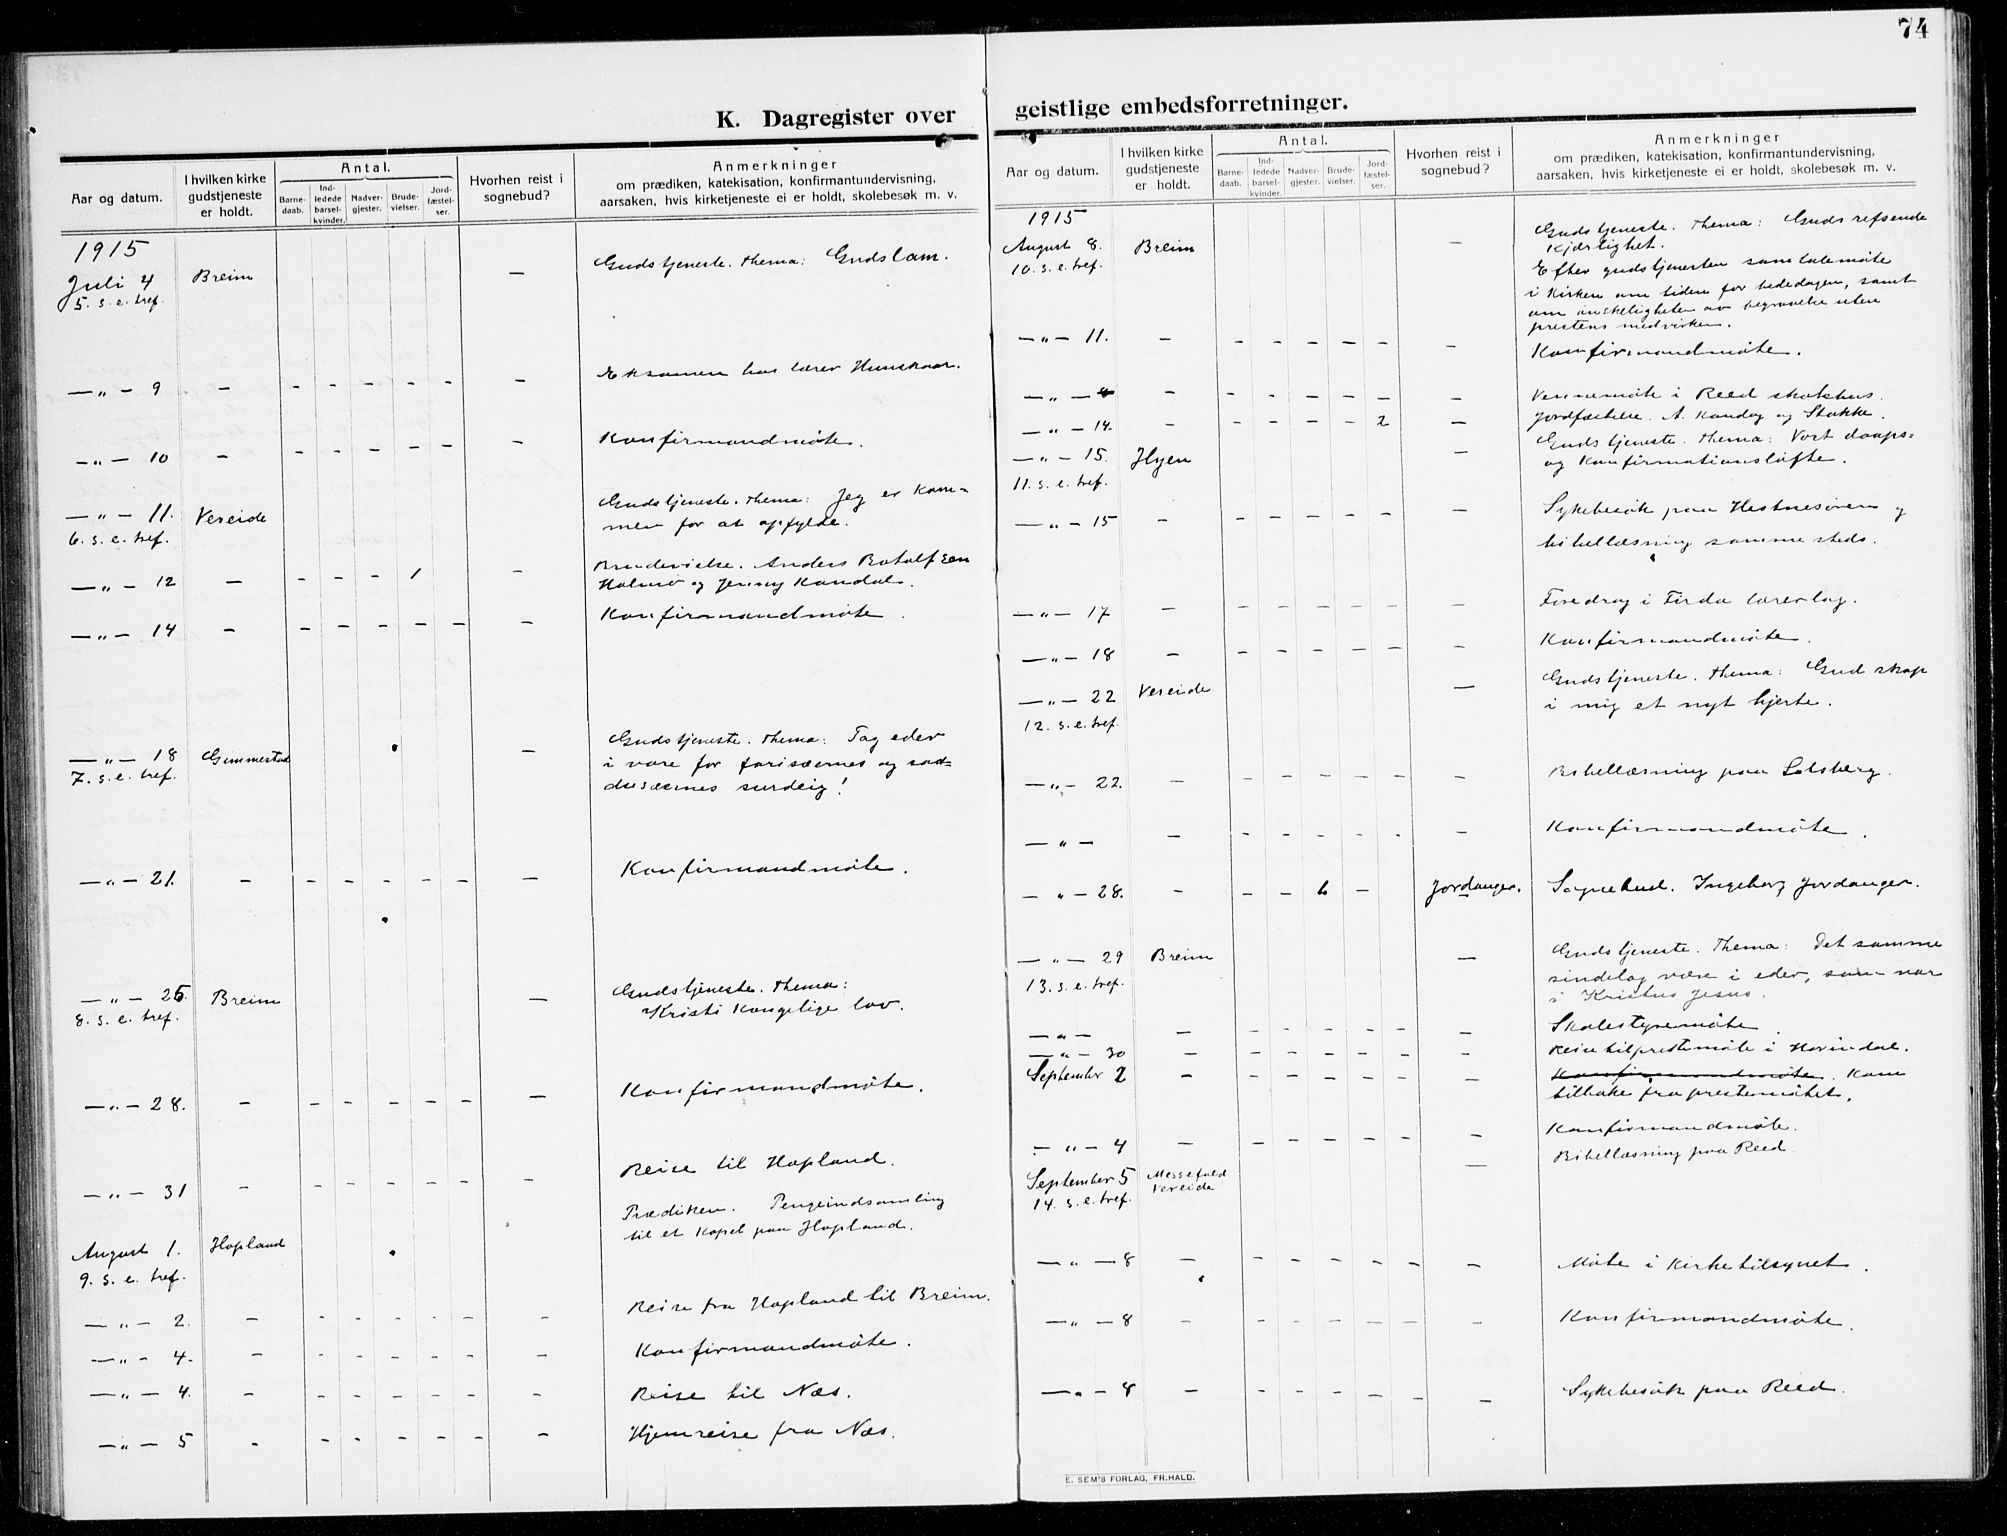 74
K. Dagregister over geistlige embedsforretninger.
Aar og datum.
I hvilken kirke gudstjeneste er holdt.
Antal.
Barnedaab.
Indledede barselkvinder.
Nadvergjester.
Brudevielser.
Jordfæstelser.
Hvorhen reist i sognebud?
Anmerkninger
om prædiken, katekisation, konfirmantundervisning,
aarsaken, hvis kirketjeneste ei er holdt, skolebesøk m. v.
1915
Juli 4 Breim — Gudstjeneste. Thema: Guds lam.
5. s. e. tref.
—„— 9 – – – – – – — Eksamen hos lærer Hunskaar.
—„— 10 – – – – – – – Konfirmandmøte.
—„— 11. Vereide Gudstjeneste. Thema: Jeg er kom=
6. s. e. tref. men for at opfylde.
—„— 12 – – – – 1 – Brudevielse. Anders Botolfsen
Holmø og Jenny Kandal.
—„— 14 – – – – – – – Konfirmandmøte.
—„— 18 Gimmestad — Gudstjeneste. Thema: Tag eder
7. s. e. tref. i vare for farisæernes og sad=
dusæernes surdeig!
—„— 21. – – – – – – — Konfirmandmøte.
—„— 25 Breim — Gudstjeneste. Thema:
8. s. e. tref. Kristi kongelige lov.
—„— 28. – – – – – – — Konfirmandmøte.
—„— 31 – – – – – – – Reise til Hopland.
Prædiken. Pengeindsamling
til et kapel paa Hopland.
August 1. Hopland
9. s. e. tref.
—„— 2. – – – – – – – Reise fra Hopland til Breim.
—„— 4. – – – – – – – Konfirmandmøte.
—„— 4. – – – – – – – Reise til Næs.
—„— 5 – – – – – – – Hjemreise fra Næs.
Aar og datum.
I hvilken kirke gudstjeneste er holdt.
Antal.
Barnedaab.
Indledede barselkvinder.
Nadvergjester.
Brudevielser.
Jordfæstelser.
Hvorhen reist i sognebud?
Anmerkninger
om prædiken, katekisation, konfirmantundervisning,
aarsaken, hvis kirketjeneste ei er holdt, skolebesøk m. v.
1915
August 8. Breim — Gudstjeneste. Thema: Guds refsende
10. s. e. tref. kjærlighet.
Efter gudstjenesten samtalemøte
i kirken om tiden for bededagen, samt
om ønskeligheten av begravelse uten
prestens medvirken.
—„— 11. – – – – – – – Konfirmandmøte.
—„— – – – – – – – Vennemøte i Reed skolehus.
—„— 14. – – – – – 2 — Jordfæstelse. A. Kandal og Stokke.
—„— 15. Hyen — Gudstjeneste. Thema: Vort daaps=
11. s. e. tref. og konfirmationsløfte.
—„— 15 – – – – – – — Sykebesøk paa Hestnesøren og
bibellæsning sammesteds.
—„— 17 – – – – – – – Foredrag i Firda lærerlag.
—„— 18 – – – – – – – Konfirmandmøte.
—„— 22 Vereide — Gudstjeneste. Thema: Gud skap
12. s. e. tref. i mig et nyt hjerte.
—„— 22. – – – – – – – Bibellæsning paa Solsberg.
—„— – – – – – – – Konfirmandmøte.
—„— 28. – – – 6 – Jordanger. Sognebud. Ingeborg Jordanger.
—„— 29 Breim — Gudstjeneste. Thema: Det samme
13. s. e. tref. sindelag være i eder, som var
i Kristus Jesus.
—„— – – – – – – – Skolestyremøte.
—„— 30 – – – – – – – Reise til prestemøte i Hornindal.
September 2 – – – – – – – Konfirmandmøte. Kom
tilbake fra prestemøtet.
—„— 4 – – – – – – – Konfirmandmøte.
September 5 Messefald — Bibellæsning paa Reed.
14. s. e. tref. Vereide
—„— 8 – – – – – – – Møte i kirketilsynet.
—„— 8 – – – – – – – Konfirmandmøte.
—„— 8 – – – – – – – Sykebesøk paa Reed.
E. SEM'S FORLAG, FR.HALD.